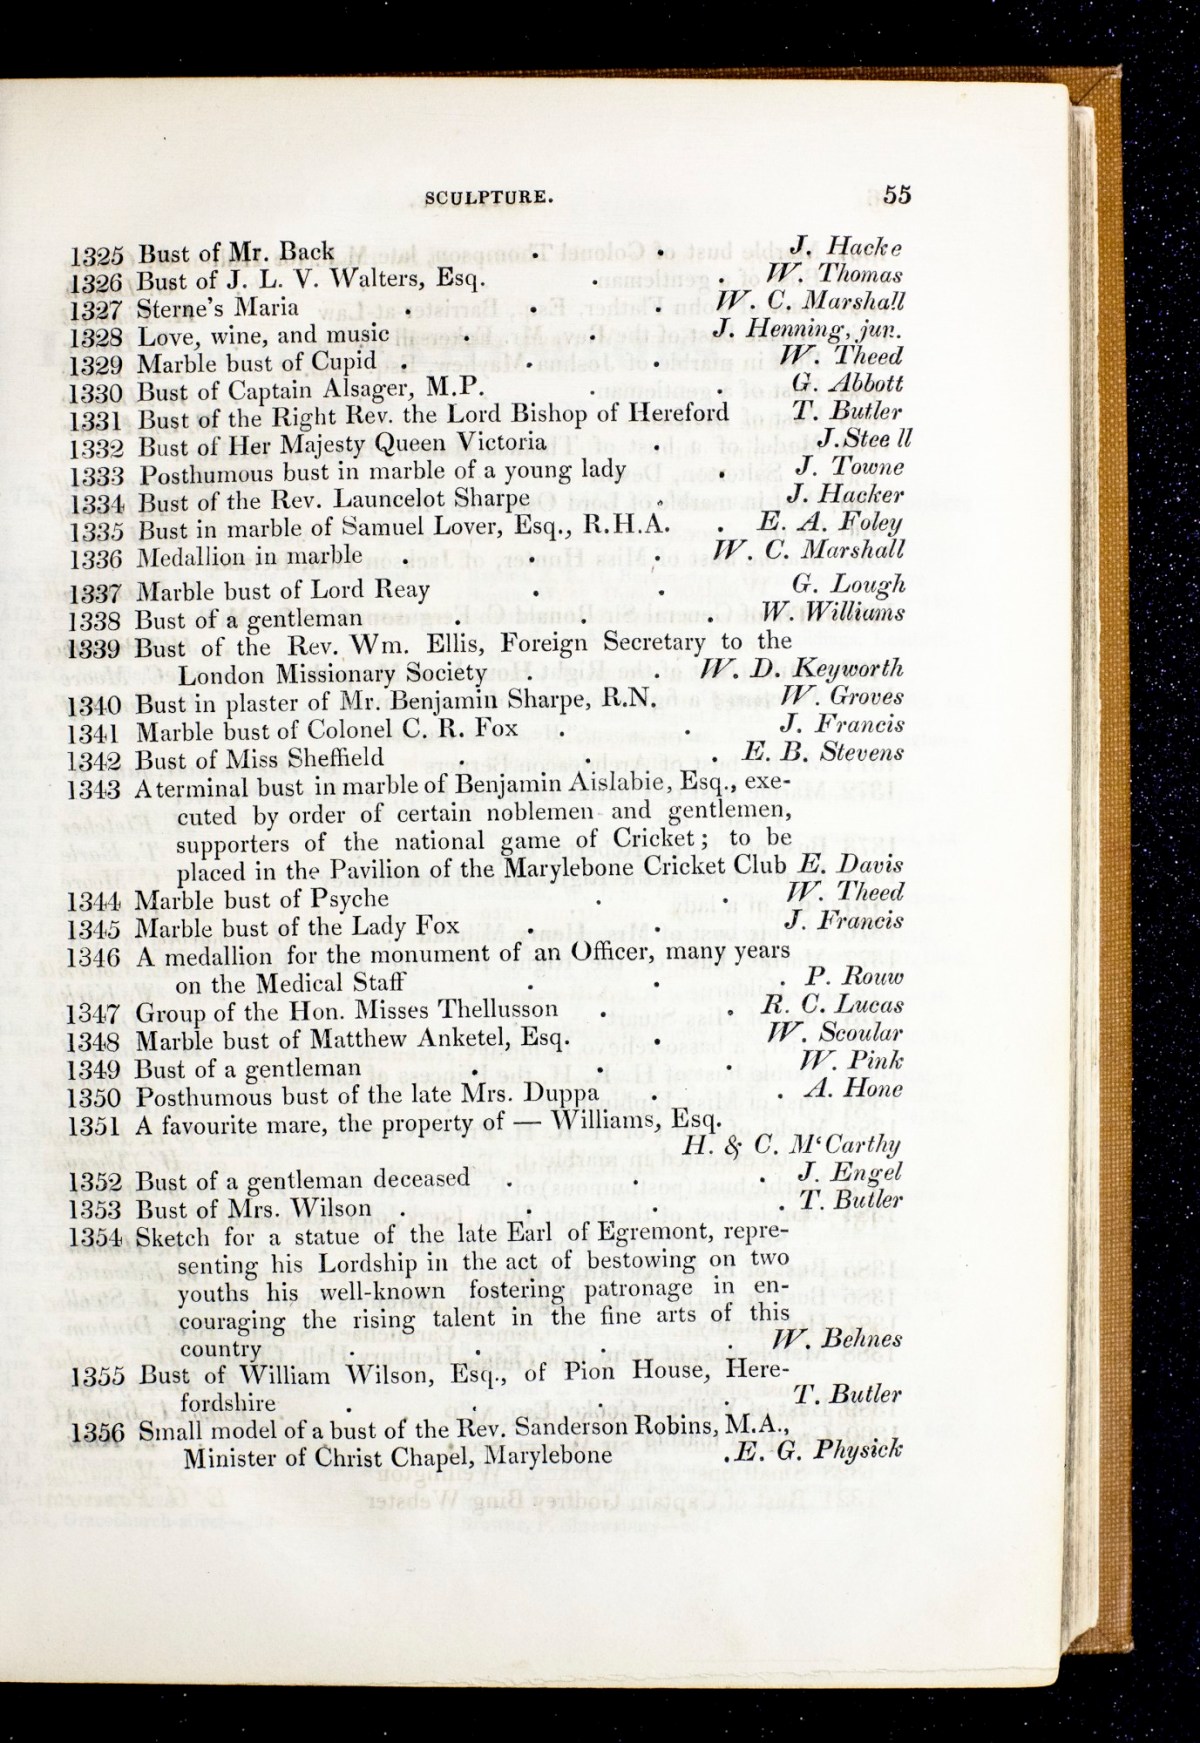 SCULPTURE. 55
1325 Bust of Mr. Back . . J. Hacke
1326 Bust of J. L. V. Walters, Esq. . . W. Thomas
1327 Sterne's Maria . . . W. C. Marshall
1328 Love, wine, and music . . J. Henning, jun.
1329 Marble bust of Cupid . . . W. Theed
1330 Bust of Captain Alsager, M.P. . . G. Abbott
1331 Bust of the Right Rev. the Lord Bishop of Hereford T. Butler
1332 Bust of Her Majesty Queen Victoria . J. Stee ll
1333 Posthumous bust in marble of a young lady . J. Towne
1334 Bust of the Rev. Launcelot Sharpe . J. Hacker
1335 Bust in marble of Samuel Lover, Esq., R.H.A. . E. A. Foley
1336 Medallion in marble . . . W. C. Marshall
1337 Marble bust of Lord Reay . . G. Lough
1338 Bust of a gentleman . . . W. Williams
1339 Bust of the Rev. Wm. Ellis, Foreign Secretary to the
London Missionary Society . . W. D. Keyworth
1340 Bust in plaster of Mr. Benjamin Sharpe, R.N. W. Groves
1341 Marble bust of Colonel C. R. Fox . . J. Francis
1342 Bust of Miss Sheffield . . . E. B. Stevens
1343 A terminal bust in marble of Benjamin Aislabie, Esq., exe-
cuted by order of certain noblemen and gentlemen,
supporters of the national game of Cricket; to be
placed in the Pavilion of the Marylebone Cricket Club E. Davis
1344 Marble bust of Psyche . . W. Theed
1345 Marble bust of the Lady Fox . . J. Francis
1346 A medallion for the monument of an Officer, many years
on the Medical Staff . . . P. Rouw
1347 Group of the Hon. Misses Thellusson . . R. C. Lucas
1348 Marble bust of Matthew Anketel, Esq. . W. Scoular
1349 Bust of a gentleman . . . W. Pink
1350 Posthumous bust of the late Mrs. Duppa . . A. Hone
1351 A favourite mare, the property of — Williams, Esq.
H. & C. M'Carthy
1352 Bust of a gentleman deceased . . . J. Engel
1353 Bust of Mrs. Wilson . . . . T. Butler
1354 Sketch for a statue of the late Earl of Egremont, repre-
senting his Lordship in the act of bestowing on two
youths his well-known fostering patronage in en-
couraging the rising talent in the fine arts of this
country . . . . W. Behnes
1355 Bust of William Wilson, Esq., of Pion House, Here-
fordshire . . . . T. Butler
1356 Small model of a bust of the Rev. Sanderson Robins, M.A.,
Minister of Christ Chapel, Marylebone . E. G. Physick